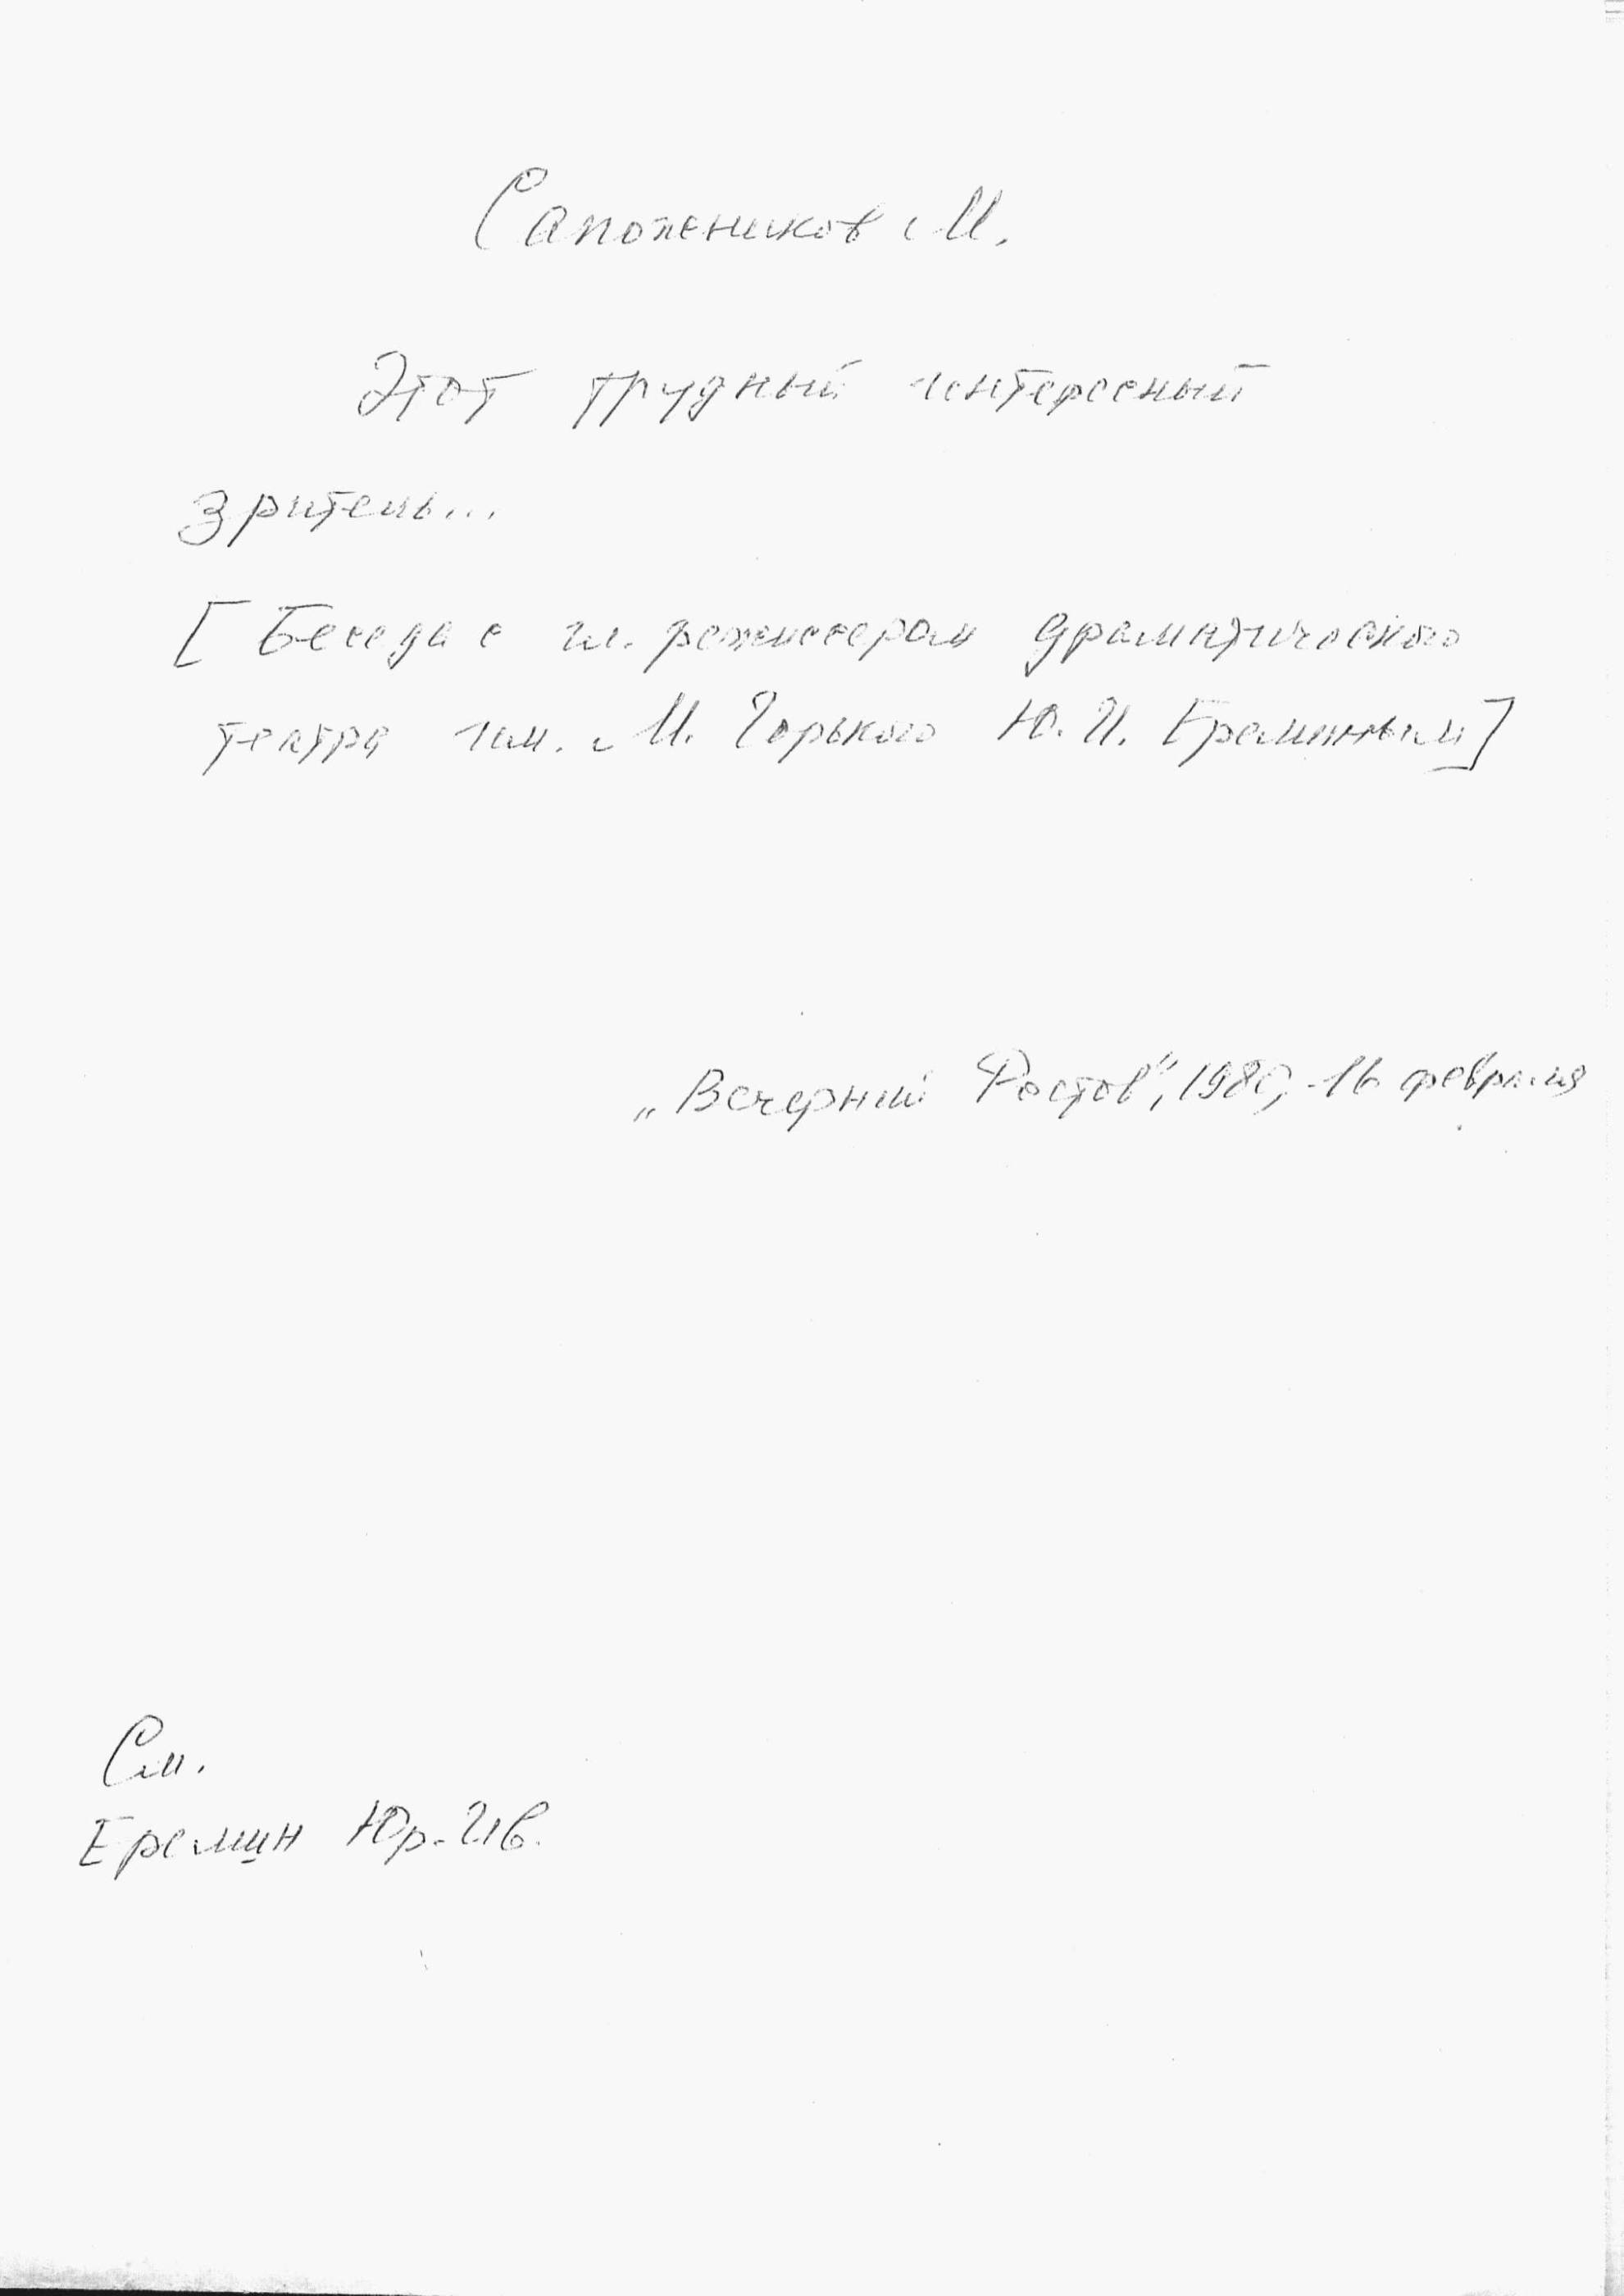 Сапожников М.
Этот трудный интересный
зритель...
[Беседа с гл. режиссером драматического
театра им. М. Горького Ю. И. Ереминым]
„Вечерний Ростов", 1980, - 16 февраля
См.
Еремин Юр. Ив.